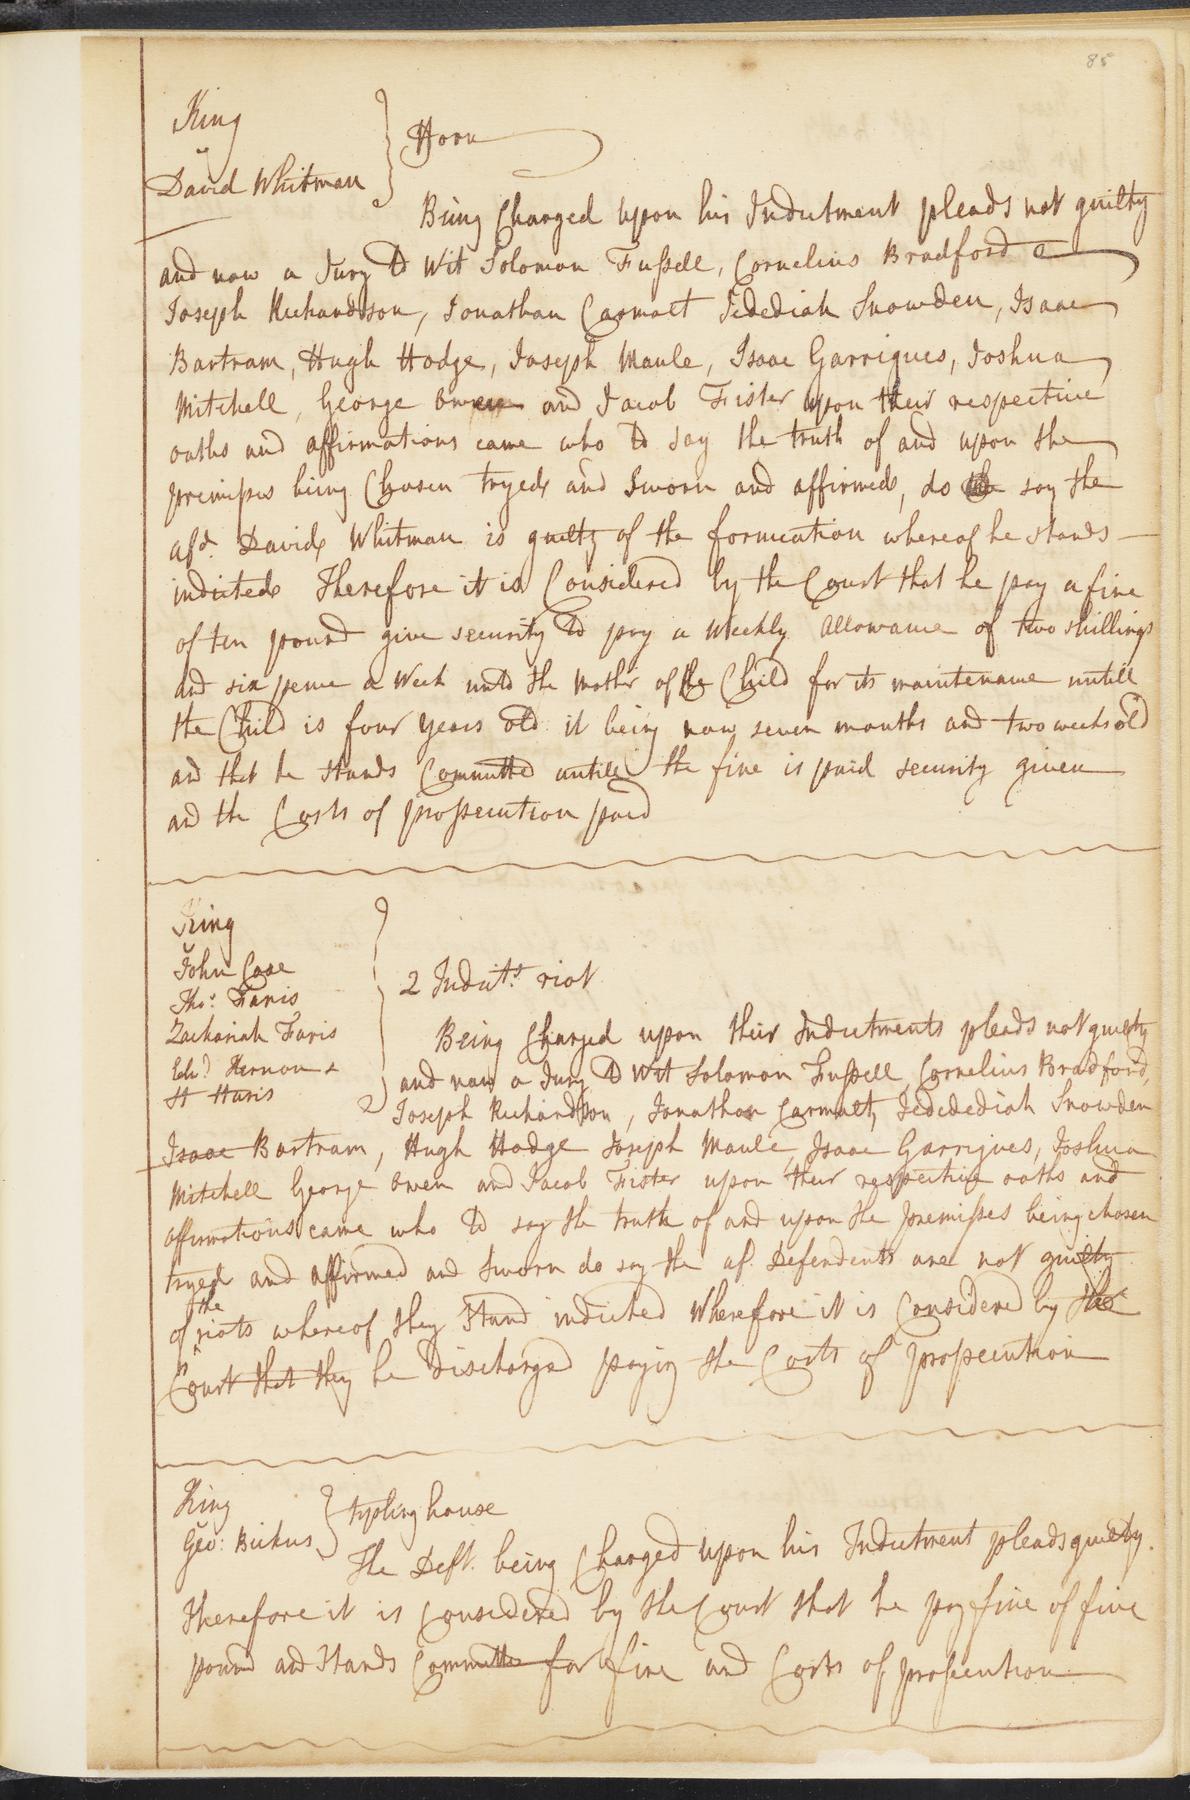 85
King
v
David Whitman } Horn
Being Charged upon his Indictment pleads not guilty
and now a Jury to Wit Solomon Fussell, Cornelius Bradford
Joseph Richardson, Jonathan Carmalt Jedediah Snowden, Isaac
Bartram, Hugh Hodge, Joseph Maule, Isaac Garrigues, Joshua
Mitchell, George Owen and Jacob Fister upon their respective
oaths and affirmations came who to say the truth of and upon the
premisses being Chosen tryed and Sworn and affirmed, do say the
afd. David Whitman is guilty of the fornication whereof he stands
indicted Therefore it is Considered by the Court that he pay a fine
of ten pound give security to pay a Weekly allowance of two shillings
and six pence a Week unto the Mother of the Child for its maintenance untill
the Child is four years old it being now seven months and two weeks old
and that he stands Committed untill the fine is paid security given
and the Costs of prossecution paid
King
v
John Case
Thos. Faris
Zachariah Faris
Edd. Hernon &
} 2 Indicts. riot
Being Charged upon their Indictments pleads not guilty
and now a Jury to Wit Solomon Fussell, Cornelius Bradford,
Joseph Richardson, Jonathan Carmalt, Jedediah Snowden
Isaac Bartram, Hugh Hodge Joseph Maule, Isaac Garrigues, Joshua
Mitchell George Owen and Jacob Fister upon their respective oaths and
affirmations came who to say the truth of and upon the premisses being chosen
tryed and affirmed and Sworn do say the af. Defendents are not guilty
of the riots whereof they Stand indicted Wherefore it is Considered by the
Court that they be Discharged paying the Costs of prossecution
King
v
Geo: Bickus } tipling house
The Deft. being Charged upon his Indictment pleads guilty.
Therefore it is Considered by the Court that he pay fine of five
pound and Stands Committed for fine and Costs of prosecution